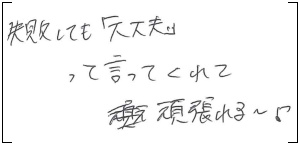 失敗しても「大丈夫」
って言ってくれて
頑張れる〜♪